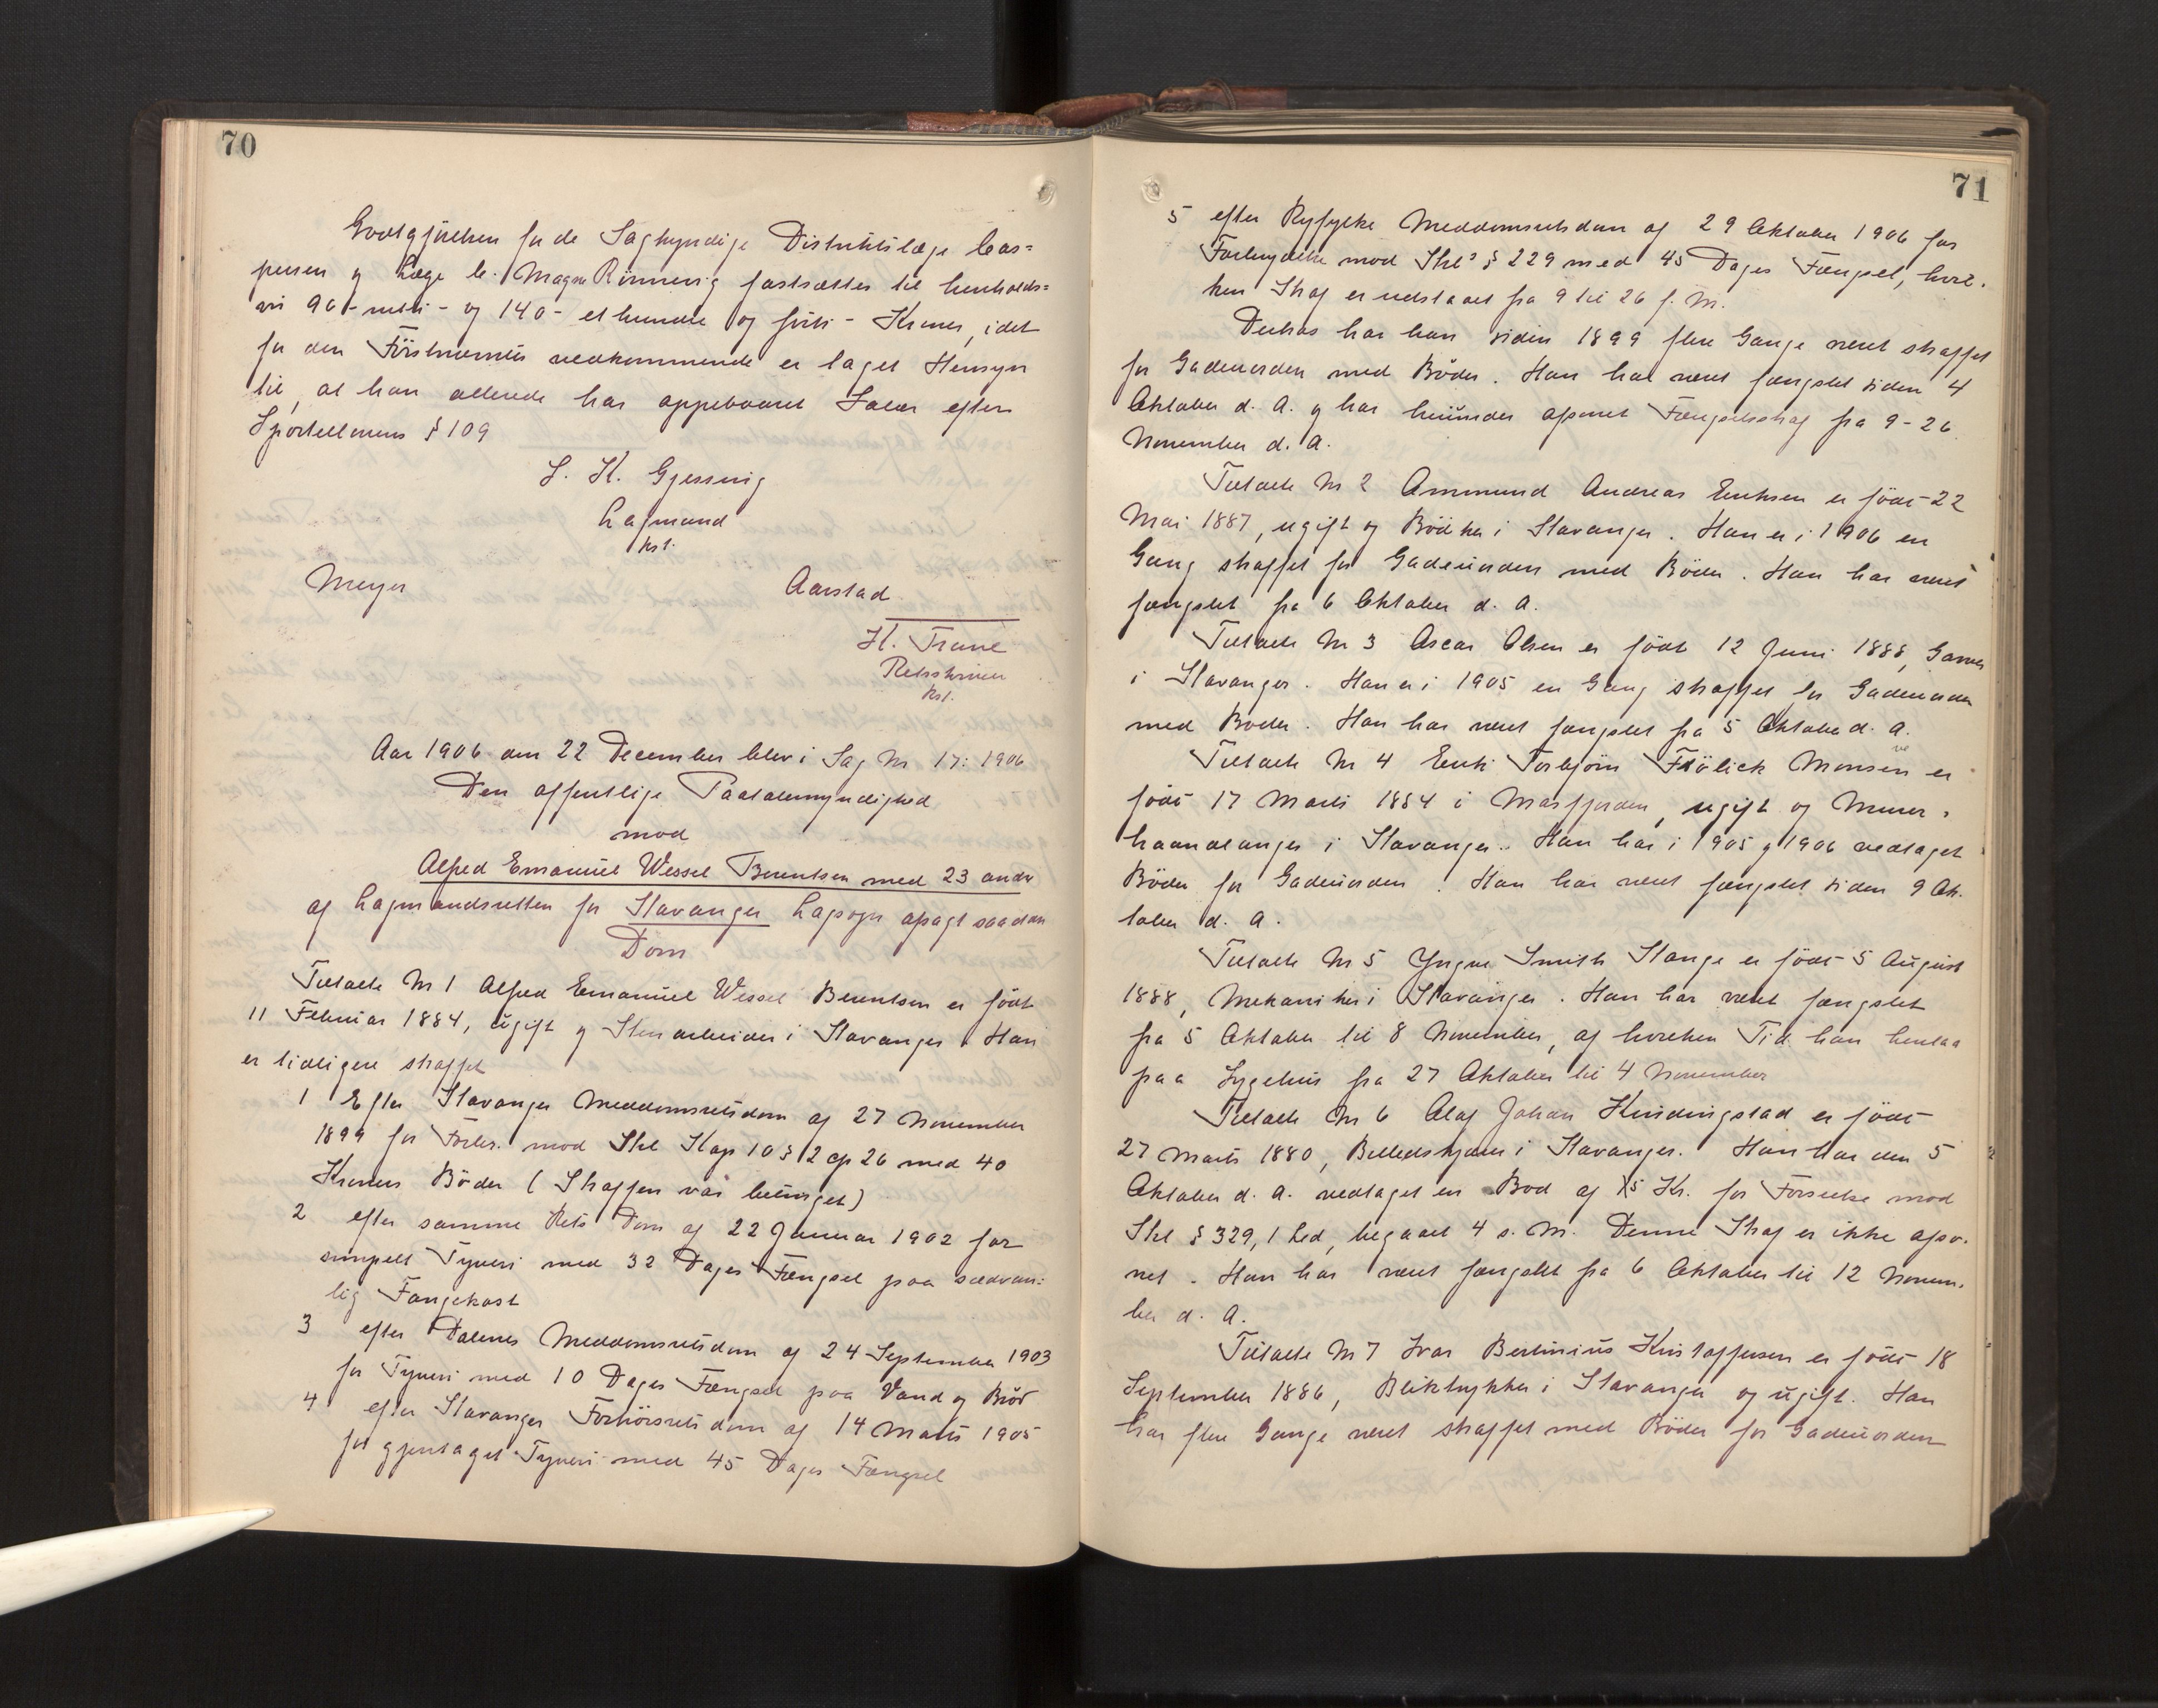 70
Godtgjørelsen for de Sagkyndige Distriktslæge Cas=
persen og Læge C. Magne Rönnevig fastsættes til henholds=
vis 90 - nitti - og 140 - et hundre og förti - Kroner, idet
for den Förstnævntes vedkommende er taget Hensyn
til, at han allerede har oppebaaret Salær efter
Sportellovens § 109
S. K. Gjessing
Lagmand
kst.
Meyer Aarstad
H. Trane
Retsskriver
kst.
Aar 1906 den 22 December blev i Sag Nr 17: 1906
Den offentlige Paatalemyndighed
mod
Alfred Emanuel Wessel Berentsen med 23 andre
af Lagmandsretten for Stavanger Lagsogn afsagt saadan
Dom
Tiltalte Nr 1 Alfred Emanuel Wessel Berentsen er födt
11 Februar 1884, ugift og Stenarbeider i Stavanger. Han
er tidligere straffet
1 Efter Stavanger Meddomsretsdom af 27 November
1899 for Forbr. mod Strl Kap 10 § 12 cfr 26 med 40
Kroners Böder (Straffen var betinget)
2 efter samme Rets Dom af 22 Januar 1902 for
simpelt Tyveri med 32 Dages Fængsel paa sædvan=
lig Fangekost
3 efter Dalenes Meddomsretsdom af 24 September 1903
for Tyveri med 10 Dages Fængsel paa Vand og Bröd
4 efter Stavanger Forhörsretsdom af 14 Marts 1905
for gjentaget Tyveri med 45 Dages Fængsel
71
5 efter Ryfylke Meddomsretsdom af 29 Oktober 1906 for
Forbrydelse mod Strl's § 229 med 45 Dages Fængsel, hvil-
ken Straf er udstaaet fra 9 til 26 f. M.
Derhos har han siden 1899 flere Gange været straffet
for Gadeuorden med Böder. Han har været fængslet siden 4
Oktober d. A. og har herunder afsonet Fængselsstraf fra 9-26
November d. A.
Tiltalte Nr 2 Ommund Andreas Eriksen er födt 22
Mai 1887, ugift og Bödker i Stavanger. Han er i 1906 en
Gang straffet for Gadeuorden med Böder. Han har været
fængslet fra 6 Oktober d. A.
Tiltalte Nr 3 Oscar Olsen er födt 12 Juni 1888, Garver
i Stavanger. Han er i 1905 en Gang straffet for Gadeuorden
med Böder. Han har været fængslet fra 5 Oktober d. A.
Tiltalte Nr 4 Erik Torbjörn Frölick Monsen er
födt 17 Marts 1884 i Masfjorden, ugift og Murer-
haandlanger i Stavanger. Han har i 1905 og 1906 vedtaget
Böder for Gadeuorden. Han har været fængslet siden 9 Ok-
tober d. A.
Tiltalte Nr 5 Yngve Smith Stange er födt 5 August
1888, Mekaniker i Stavanger. Han har været fængslet
fra 5 Oktober til 8 November, af hvilken Tid han henlaa
paa Sygehus fra 27 Oktober til 4 November
Tiltalte Nr 6 Olaf Johan Kindingstad er födt
27 Marts 1880, Billedskjærer i Stavanger. Han har den 5
Oktober d. A. vedtaget en Bod af 15 Kr. for Forseelse mod
Strl § 329, 1 Led, begaaet 4 s. M. Denne Straf er ikke afso-
net. Han har været fængslet fra 6 Oktober til 12 Novem-
ber d. A.
Tiltalte Nr 7 Ivar Bertinius Kristoffersen er födt 18
September 1886, Bliktrykker i Stavanger og ugift. Han
har flere Gange været straffet med Böder for Gadeuorden